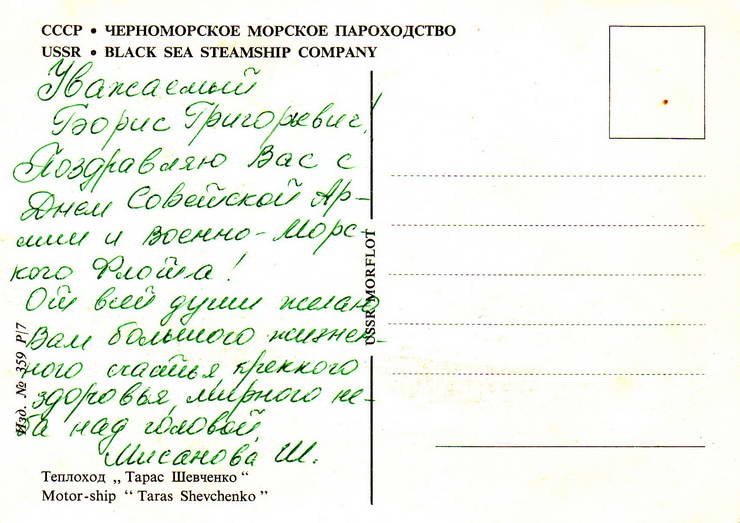 СССР • ЧЕРНОМОРСКОЕ МОРСКОЕ ПАРОХОДСТВО
USSR • BLACK SEA STEAMSHIP COMPANY
Уважаемый
Борис Григорьевич!
Поздравляю Вас с
Днем Советской Ар-
мии и Военно-Морс-
кого Флота!
От всей души желаю
Вам большого жизнен-
ного счастья крепкого
здоровья, мирного не-
ба над головой
Мисанова Ш.
Теплоход „Тарас Шевченко“
Motor-ship “Taras Shevchenko”
USSR MORFLOT
Изд. № 359 Р/7